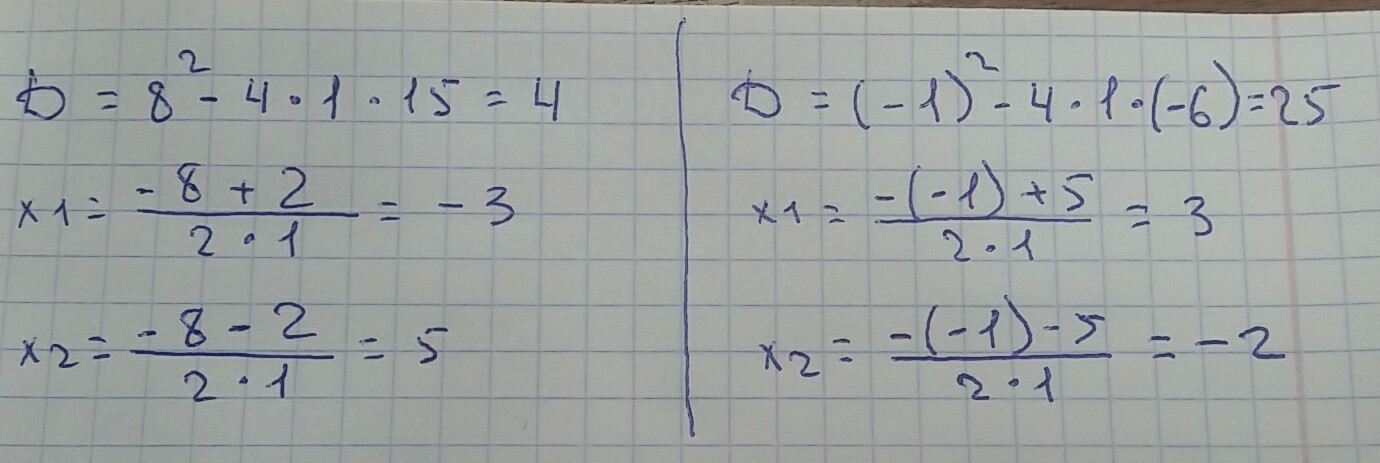 D = 8² - 4 · 1 · 15 = 4
x1 = (-8 + 2) / (2 · 1) = -3
x2 = (-8 - 2) / (2 · 1) = 5
D = (-1)² - 4 · 1 · (-6) = 25
x1 = (-(-1) + 5) / (2 · 1) = 3
x2 = (-(-1) - 5) / (2 · 1) = -2